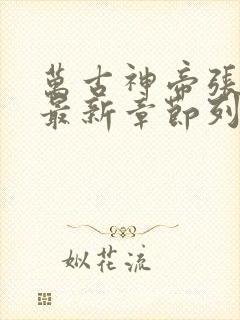 萬古神帝張
最新章節列
姒花流